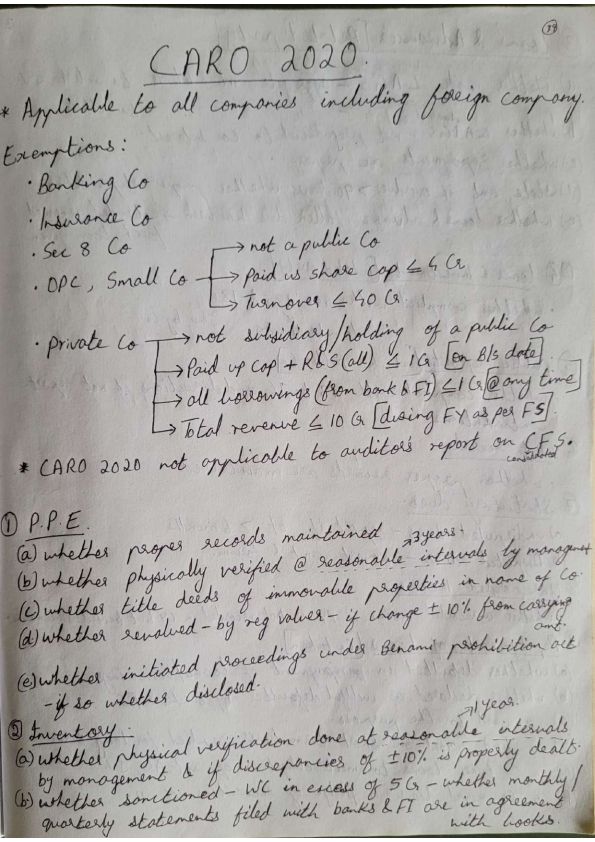 39
CARO 2020.
* Applicable to all companies including foreign company.
Exemptions:
· Banking Co
· Insurance Co
· Sec 8 Co
· OPC, Small Co → not a public Co
→ Paid us share cap ≤ 4 Cr
→ Turnover ≤ 40 Cr.
· Private Co → not subsidiary/holding of a public Co
→ Paid up cap + R&S (all) ≤ 1 Cr [on B/s date]
→ all borrowings (from bank & FI) ≤ 1 Cr [@ any time]
→ Total revenue ≤ 10 Cr [during FY as per FS].
* CARO 2020 not applicable to auditor's report on CFS.
consolidated
① P.P.E.
(a) whether proper records maintained → 3 years.
(b) whether physically verified @ reasonable intervals by management
(c) whether title deeds of immovable properties in name of Co.
(d) whether revalved - by reg valuer - if change ± 10% from carrying
amt.
(e) whether initiated proceedings under Benami prohibition act
- if so whether disclosed.
② Inventory. → 1 year.
(a) whether physical verification done at reasonable intervals
by management & if discrepancies of ±10% is properly dealt.
(b) whether sanctioned - WC in excess of 5 Cr - whether monthly/
quarterly statements filed with banks & FI are in agreement
with books.